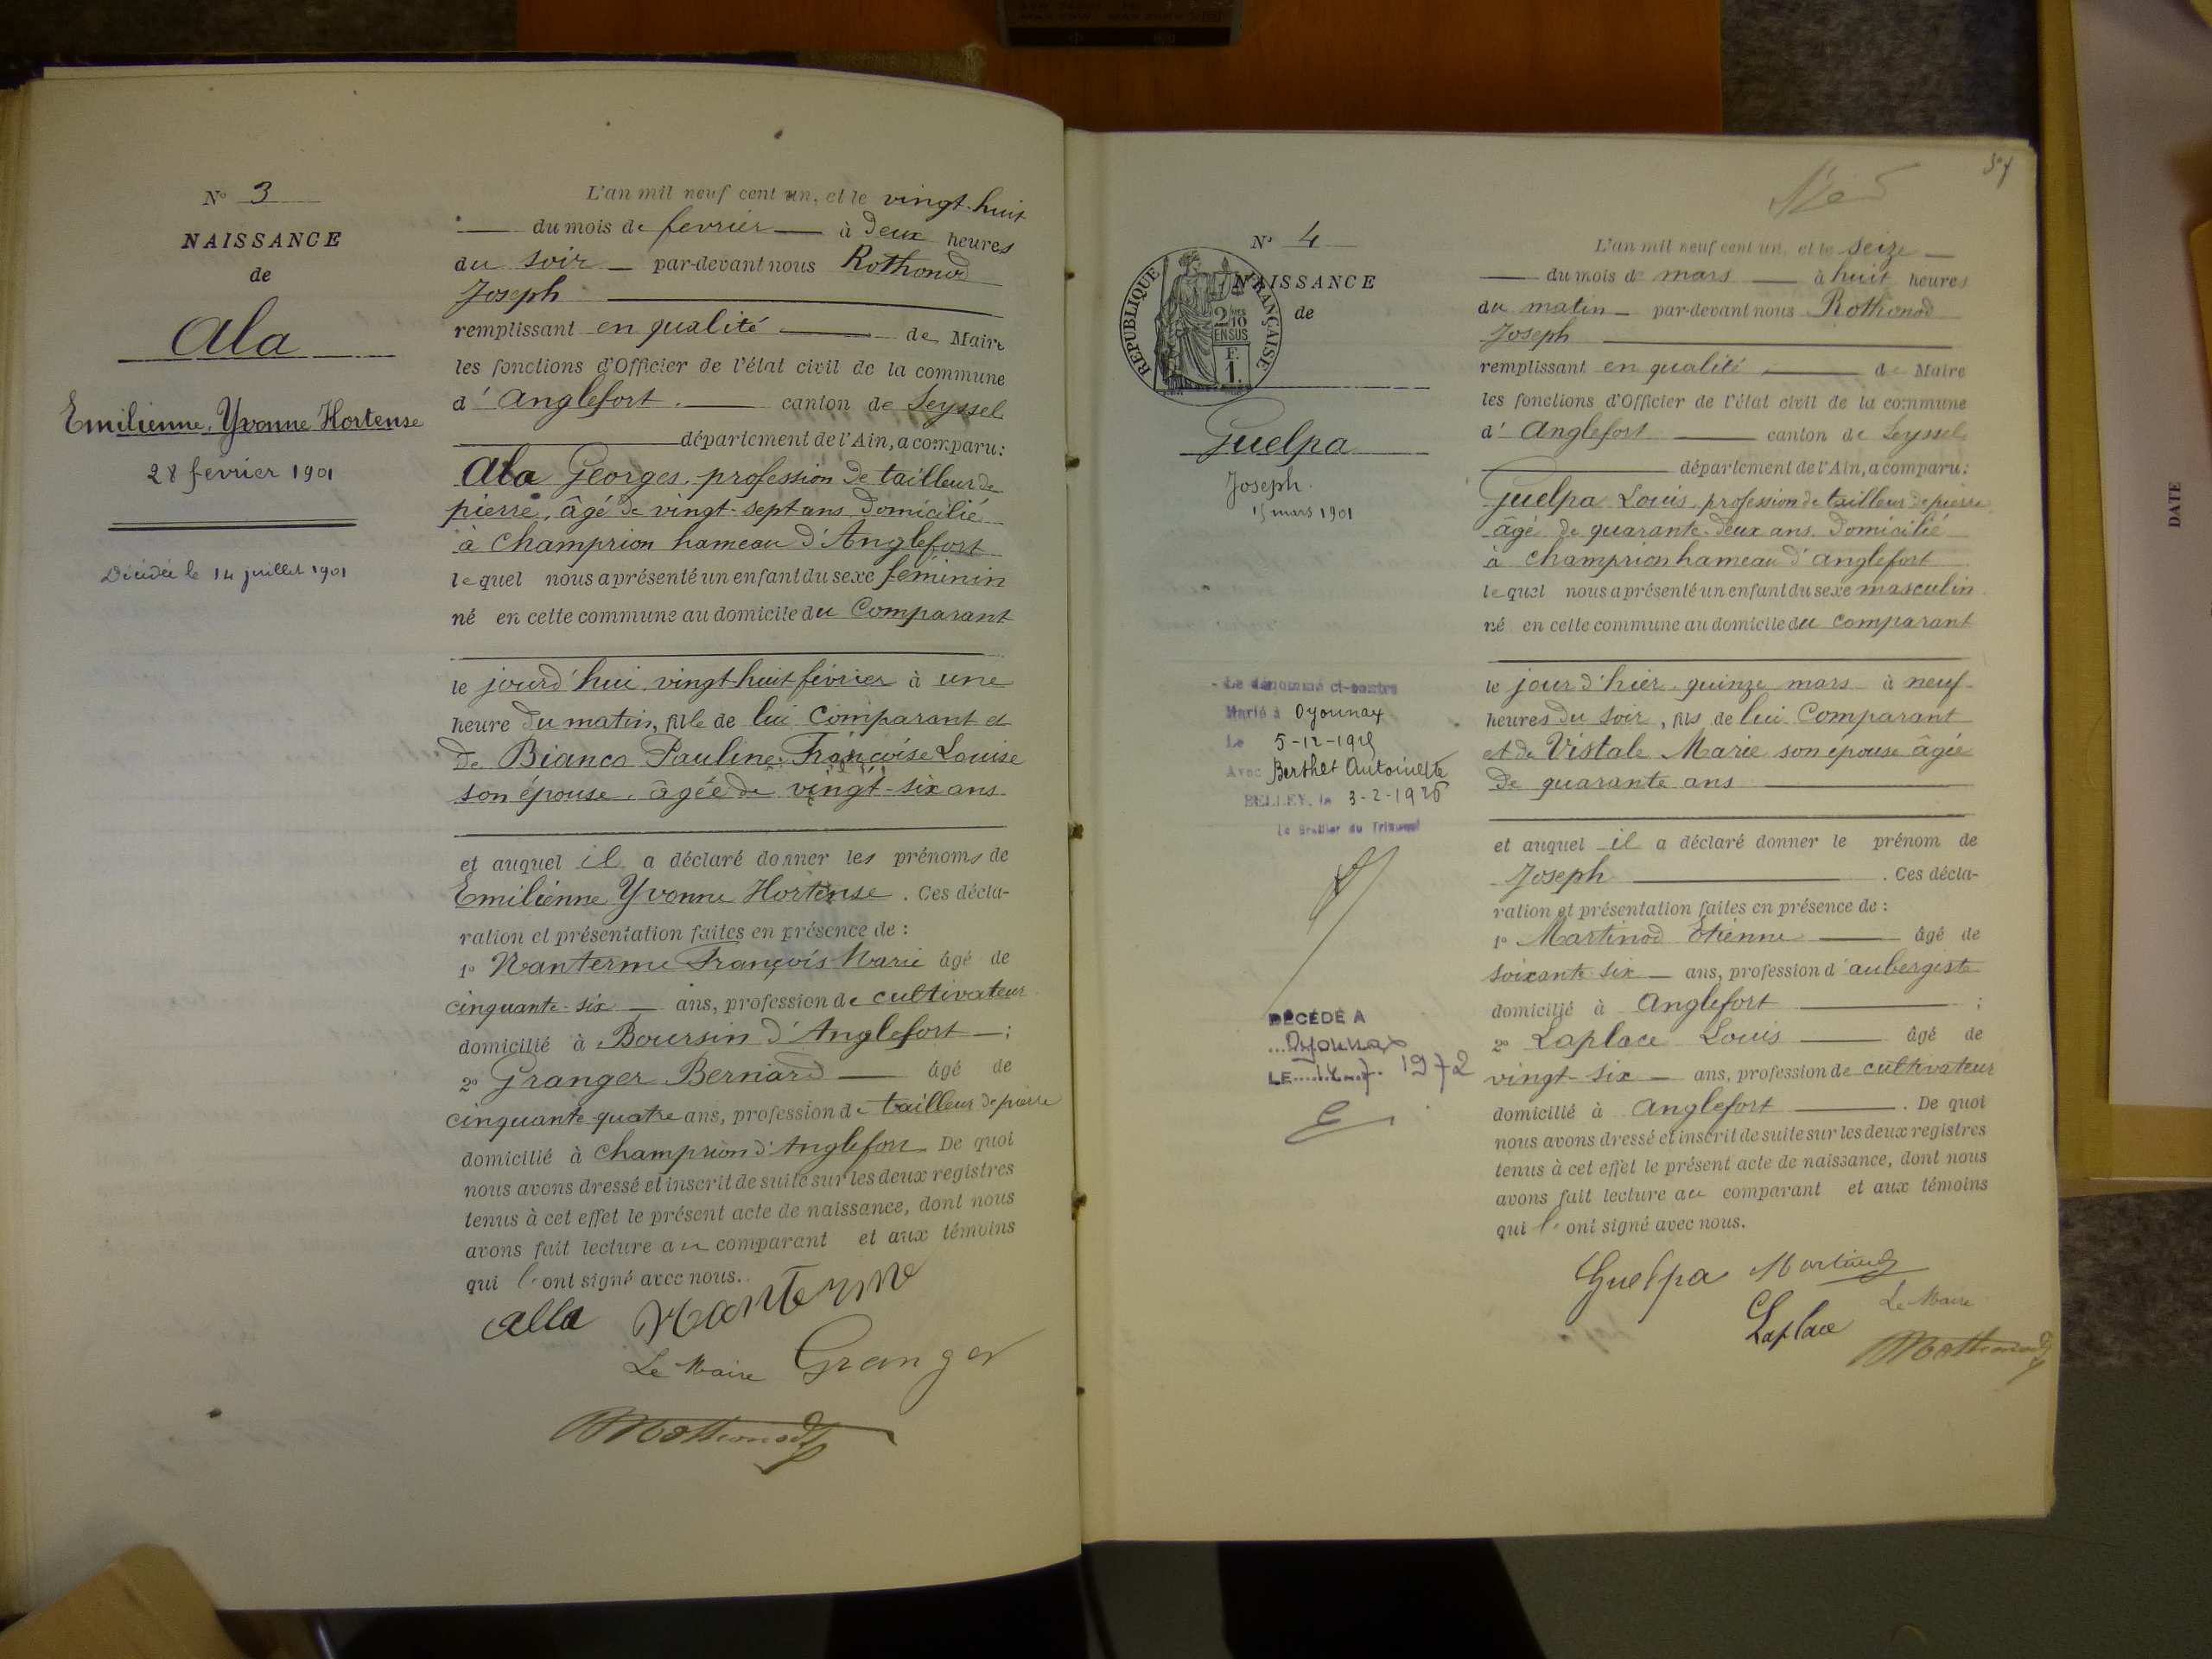 N° 3
NAISSANCE
de
Ala
Emilienne, Yvonne Hortense
28 février 1901
Décédée le 14 juillet 1901
L'an mil neuf cent un, et le vingt-huit
du mois de fevrier à deux heures
du soir par-devant nous Rothonod
Joseph
remplissant en qualité de Maire
les fonctions d'Officier de l'état civil de la commune
d' Anglefort canton de Seyssel
département de l'Ain, a comparu:
Ala Georges, profession de tailleur de
pierre, âgé de vingt-sept ans domicilié
à Champrion hameau d'Anglefort
lequel nous a présenté un enfant du sexe féminin
né en cette commune au domicile du Comparant
le jourd'hui vingt-huit février à une
heure du matin, fille de lui Comparant et
de Bianco Pauline Françoise Louise
son épouse, âgée de vingt-six ans
et auquel il a déclaré donner les prénoms de
Emilienne Yvonne Hortense. Ces décla-
ration et présentation faites en présence de :
1° Nanterme François Marie âgé de
cinquante-six ans, profession de cultivateur
domicilié à Boursin d'Anglefort ;
2° Granger Bernard âgé de
cinquante quatre ans, profession de tailleur de pierre
domicilié à Champrion d'Anglefort De quoi
nous avons dressé et inscrit de suite sur les deux registres
tenus à cet effet le présent acte de naissance, dont nous
avons fait lecture au comparant et aux témoins
qui l'ont signé avec nous.
alla Nanterme
Le Maire Granger
Rothonod
37
N° 4
NAISSANCE
de
RÉPUBLIQUE FRANÇAISE
2/10
EN SUS
F.
1.
Guelpa
Joseph
15 mars 1901
Le dénommé ci-contre
Marié à Oyonnax
Le 5-12-1925
Avec Berthet Antoinette
BELLEY, le 3-2-1926
Le Greffier du Tribunal
DÉCÉDÉ A
Oyonnax
LE 7. 1972
L'an mil neuf cent un, et le seize
du mois de mars à huit heures
du matin par-devant nous Rothonod
Joseph
remplissant en qualité de Maire
les fonctions d'Officier de l'état civil de la commune
d' Anglefort canton de Seyssel
département de l'Ain, a comparu:
Guelpa Louis, profession de tailleur de pierre
âgé de quarante-deux ans. Domicilié
à Champrion hameau d'anglefort
lequel nous a présenté un enfant du sexe masculin
né en cette commune au domicile du comparant
le jour d'hier quinze mars à neuf
heures du soir, fils de lui Comparant
et de Vistale Marie son épouse âgée
de quarante ans
et auquel il a déclaré donner le prénom de
Joseph. Ces décla-
ration et présentation faites en présence de :
1° Martinod Etienne âgé de
soixante six ans, profession d'aubergiste
domicilié à Anglefort ;
2° Laplace Louis âgé de
vingt-six ans, profession de cultivateur
domicilié à Anglefort. De quoi
nous avons dressé et inscrit de suite sur les deux registres
tenus à cet effet le présent acte de naissance, dont nous
avons fait lecture au comparant et aux témoins
qui l'ont signé avec nous.
Guelpa Martinod
Laplace Le Maire
Rothonod
DATE